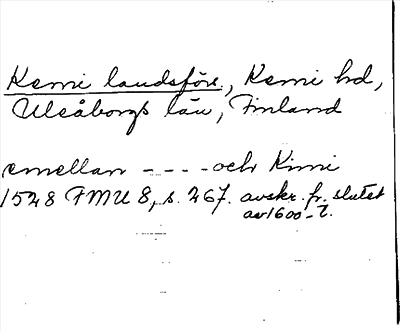 Kemi landsför., Kemi hd,
Uleåborgs län, Finland
emellan - - - - och Kimi
1528 FMU 8, s. 267. avskr. fr. slutet
av 1600-t.